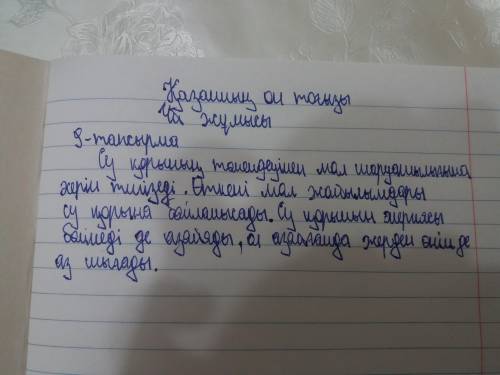 Қазанның он тоғызы
Үй жұмысы
9-тапсырма
Су қорының төмендеуімен мал шаруашылығына
зерім тигізеді. Өткені мал жайылымдары
су қорына байланысады. Су қорының
бөлінеді де азайяды, ол азайғанда жерден өнім де
аз шығады.